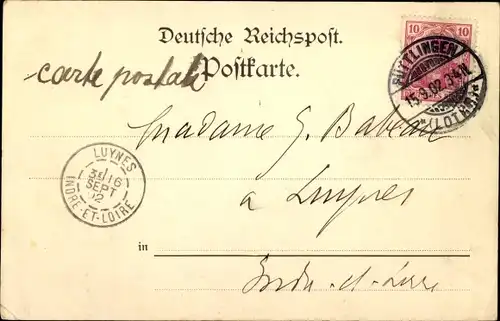 Deutsche Reichspost.
carte postale
Postkarte.
10 10
PÜTTLINGEN
15.9.02
*(LOTHR)*
Madame G. Babeau
LUYNES
16
SEPT
02
INDRE-ET-LOIRE
a Luynes
in
Indre-et-Loire